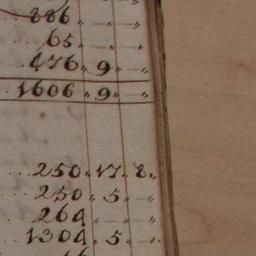 886 . — . — „
65 . — . — „
476 . 9 . — „
1606 . 9 . — „
250 . 17 . 8 .
250 . 5 . — „
264 . — „
1304 . 5 . — .